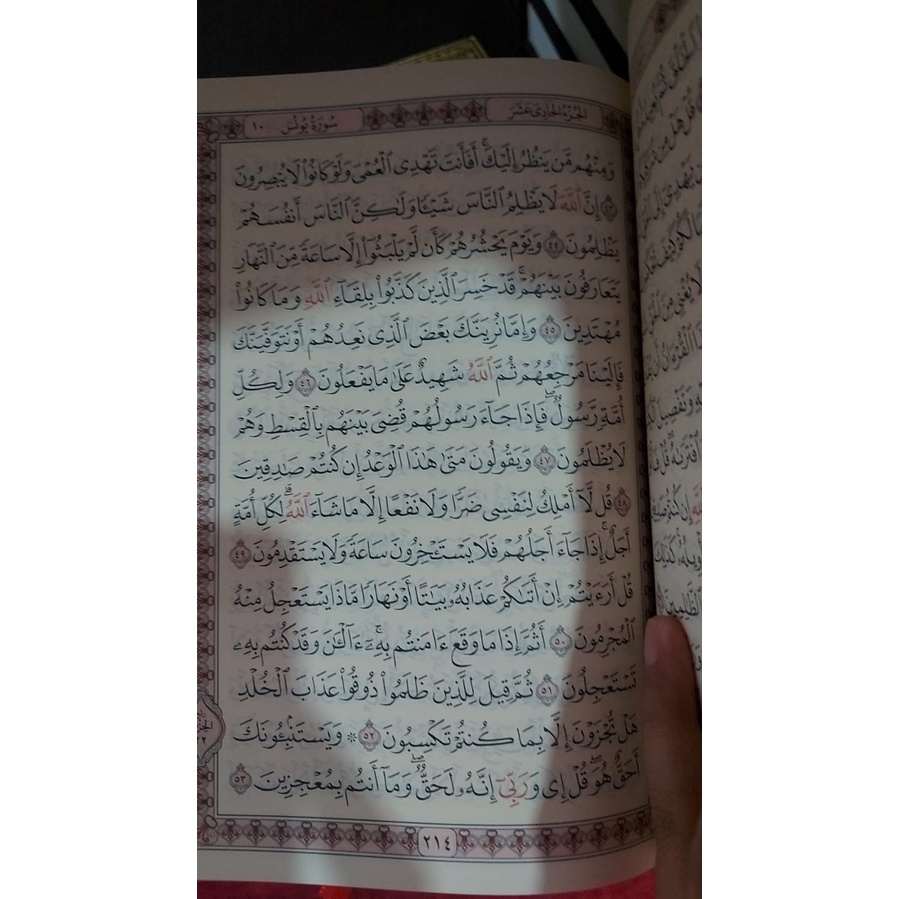 الجزء الحادي عشر
سورة يونس ١٠
وَمِنْهُم مَّن يَنظُرُ إِلَيْكَ ۚ أَفَأَنتَ تَهْدِى ٱلْعُمْىَ وَلَوْ كَانُوا۟ لَا يُبْصِرُونَ
٤٣ إِنَّ ٱللَّهَ لَا يَظْلِمُ ٱلنَّاسَ شَيْـًٔا وَلَـٰكِنَّ ٱلنَّاسَ أَنفُسَهُمْ
يَظْلِمُونَ ٤٤ وَيَوْمَ يَحْشُرُهُمْ كَأَن لَّمْ يَلْبَثُوٓا۟ إِلَّا سَاعَةً مِّنَ ٱلنَّهَارِ
يَتَعَارَفُونَ بَيْنَهُمْ ۚ قَدْ خَسِرَ ٱلَّذِينَ كَذَّبُوا۟ بِلِقَآءِ ٱللَّهِ وَمَا كَانُوا۟
مُهْتَدِينَ ٤٥ وَإِمَّا نُرِيَنَّكَ بَعْضَ ٱلَّذِى نَعِدُهُمْ أَوْ نَتَوَفَّيَنَّكَ
فَإِلَيْنَا مَرْجِعُهُمْ ثُمَّ ٱللَّهُ شَهِيدٌ عَلَىٰ مَا يَفْعَلُونَ ٤٦ وَلِكُلِّ
أُمَّةٍ رَّسُولٌ ۖ فَإِذَا جَآءَ رَسُولُهُمْ قُضِىَ بَيْنَهُم بِٱلْقِسْطِ وَهُمْ
لَا يُظْلَمُونَ ٤٧ وَيَقُولُونَ مَتَىٰ هَـٰذَا ٱلْوَعْدُ إِن كُنتُمْ صَـٰدِقِينَ
٤٨ قُل لَّآ أَمْلِكُ لِنَفْسِى ضَرًّا وَلَا نَفْعًا إِلَّا مَا شَآءَ ٱللَّهُ ۗ لِكُلِّ أُمَّةٍ
أَجَلٌ ۚ إِذَا جَآءَ أَجَلُهُمْ فَلَا يَسْتَـْٔخِرُونَ سَاعَةً وَلَا يَسْتَقْدِمُونَ ٤٩
قُلْ أَرَءَيْتُمْ إِنْ أَتَىٰكُمْ عَذَابُهُۥ بَيَـٰتًا أَوْ نَهَارًا مَّاذَا يَسْتَعْجِلُ مِنْهُ
ٱلْمُجْرِمُونَ ٥٠ أَثُمَّ إِذَا مَا وَقَعَ ءَامَنتُم بِهِۦٓ ۚ ءَآلْـَٔـٰنَ وَقَدْ كُنتُم بِهِۦ
تَسْتَعْجِلُونَ ٥١ ثُمَّ قِيلَ لِلَّذِينَ ظَلَمُوا۟ ذُوقُوا۟ عَذَابَ ٱلْخُلْدِ
هَلْ تُجْزَوْنَ إِلَّا بِمَا كُنتُمْ تَكْسِبُونَ ٥٢ ۞ وَيَسْتَنۢبِـُٔونَكَ
أَحَقٌّ هُوَ ۖ قُلْ إِى وَرَبِّىٓ إِنَّهُۥ لَحَقٌّ ۖ وَمَآ أَنتُم بِمُعْجِزِينَ ٥٣
٢١٤